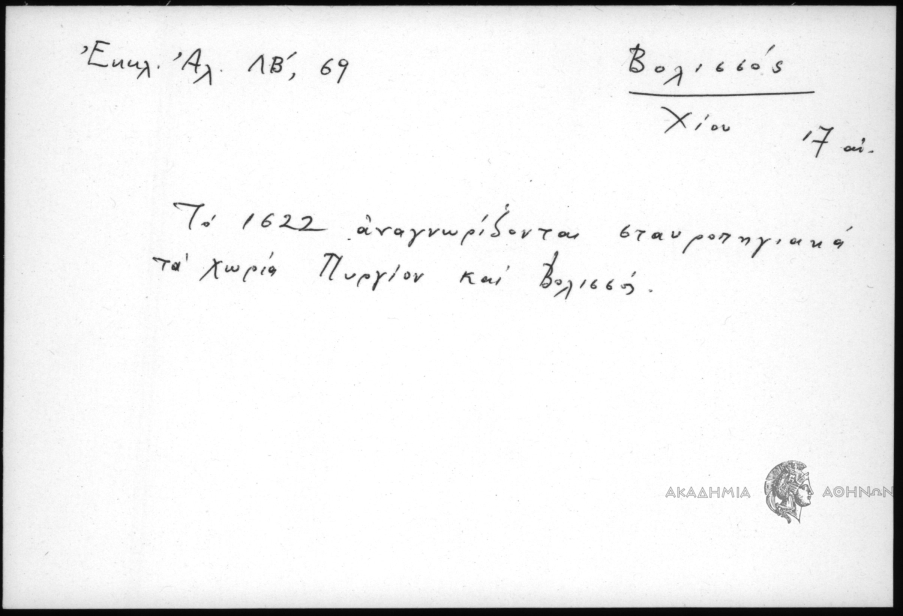 Ἐκκλ. Ἀλ. ΛΒ´, 69
Βολισσός
Χίου
17 αἰ.
Τό 1622 ἀναγνωρίζονται σταυροπηγιακά
τά χωρία Πυργίον καί Βολισσός.
ΑΚΑΔΗΜΙΑ ΑΘΗΝΩΝ